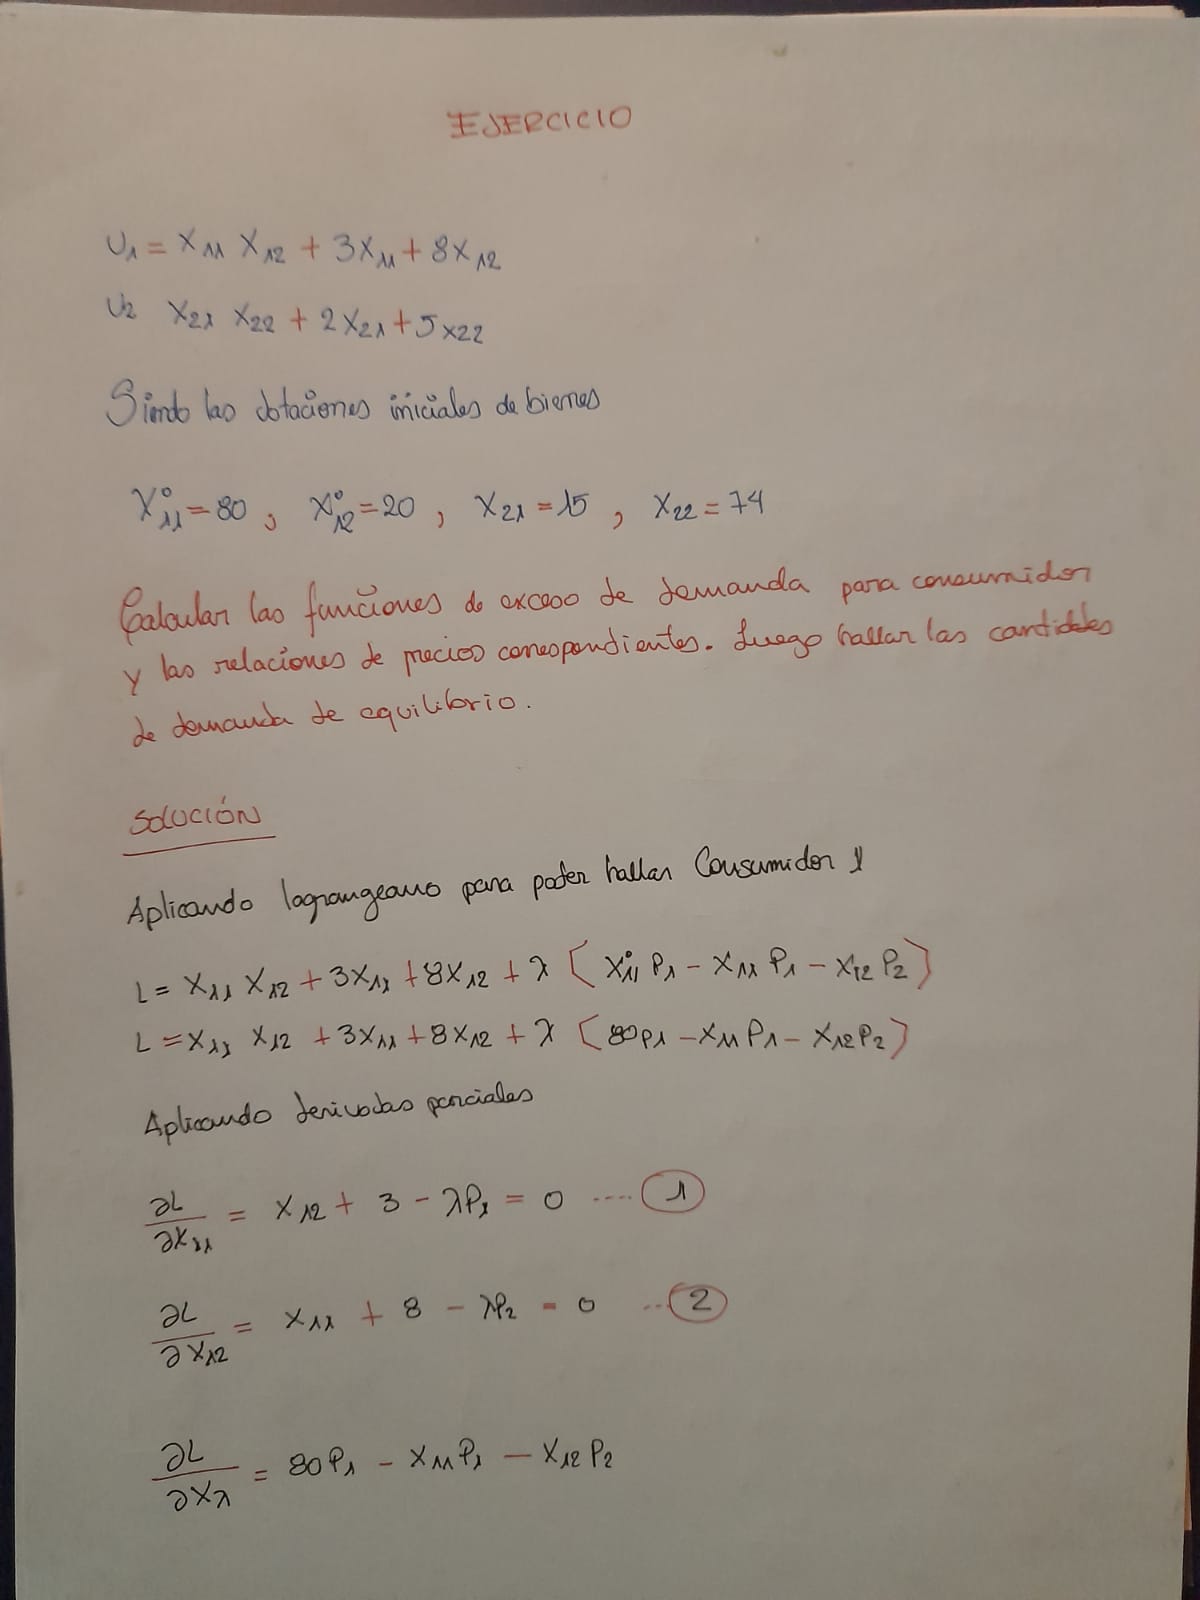 EJERCICIO
U₁ = X₁₁ X₁₂ + 3X₁₁ + 8X₁₂
U₂ X₂₁ X₂₂ + 2X₂₁ + 5X₂₂
Siendo las dotaciones iniciales de bienes
X°₁₁ = 80 , X°₁₂ = 20 , X₂₁ = 15 , X₂₂ = 74
Calcular las funciones de exceso de demanda para consumidor
y las relaciones de precios correspondientes. Luego hallar las cantidades
de demanda de equilibrio.
SOLUCIÓN
Aplicando lagrangeano para poder hallar Consumidor 1
L = X₁₁ X₁₂ + 3X₁₁ + 8X₁₂ + λ [ X°₁₁ P₁ - X₁₁ P₁ - X₁₂ P₂ ]
L = X₁₁ X₁₂ + 3X₁₁ + 8X₁₂ + λ [ 80P₁ - X₁₁ P₁ - X₁₂ P₂ ]
Aplicando derivadas parciales
∂L/∂X₁₁ = X₁₂ + 3 - λP₁ = 0 .... 1
∂L/∂X₁₂ = X₁₁ + 8 - λP₂ = 0 ... 2
∂L/∂Xλ = 80P₁ - X₁₁P₁ - X₁₂P₂